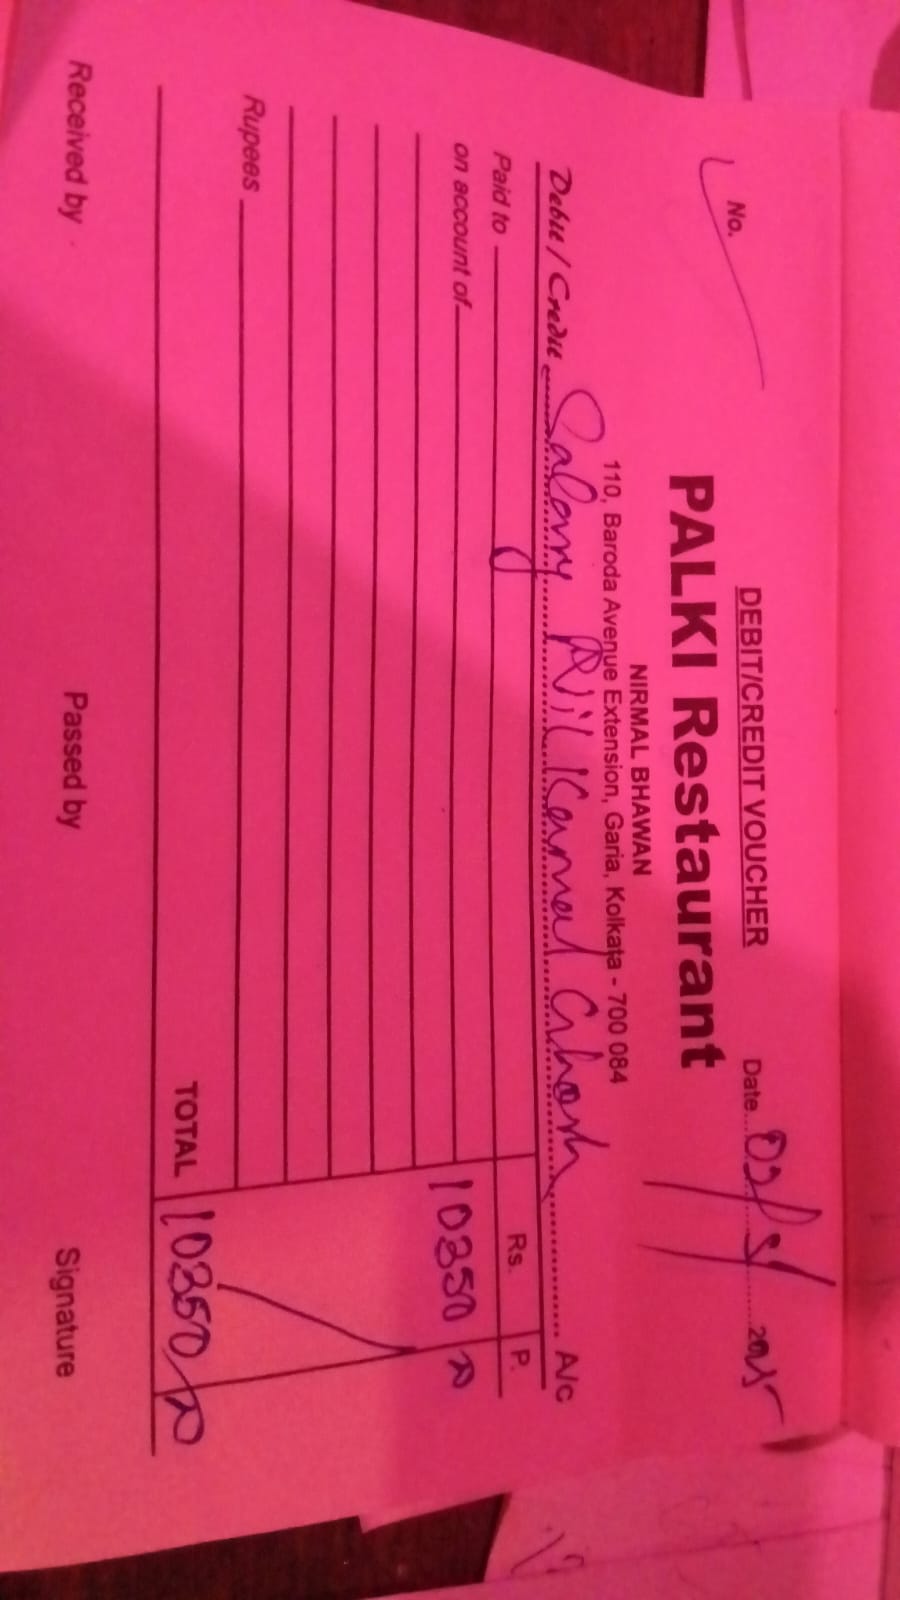 DEBIT/CREDIT VOUCHER
No. Date 2025
PALKI Restaurant
NIRMAL BHAWAN
110, Baroda Avenue Extension, Garia, Kolkata - 700 084
Debit / Credit Salary Nil Kamal Ghosh A/c
Paid to Rs. P.
on account of 10350
Rupees
TOTAL 10350
Received by Passed by Signature